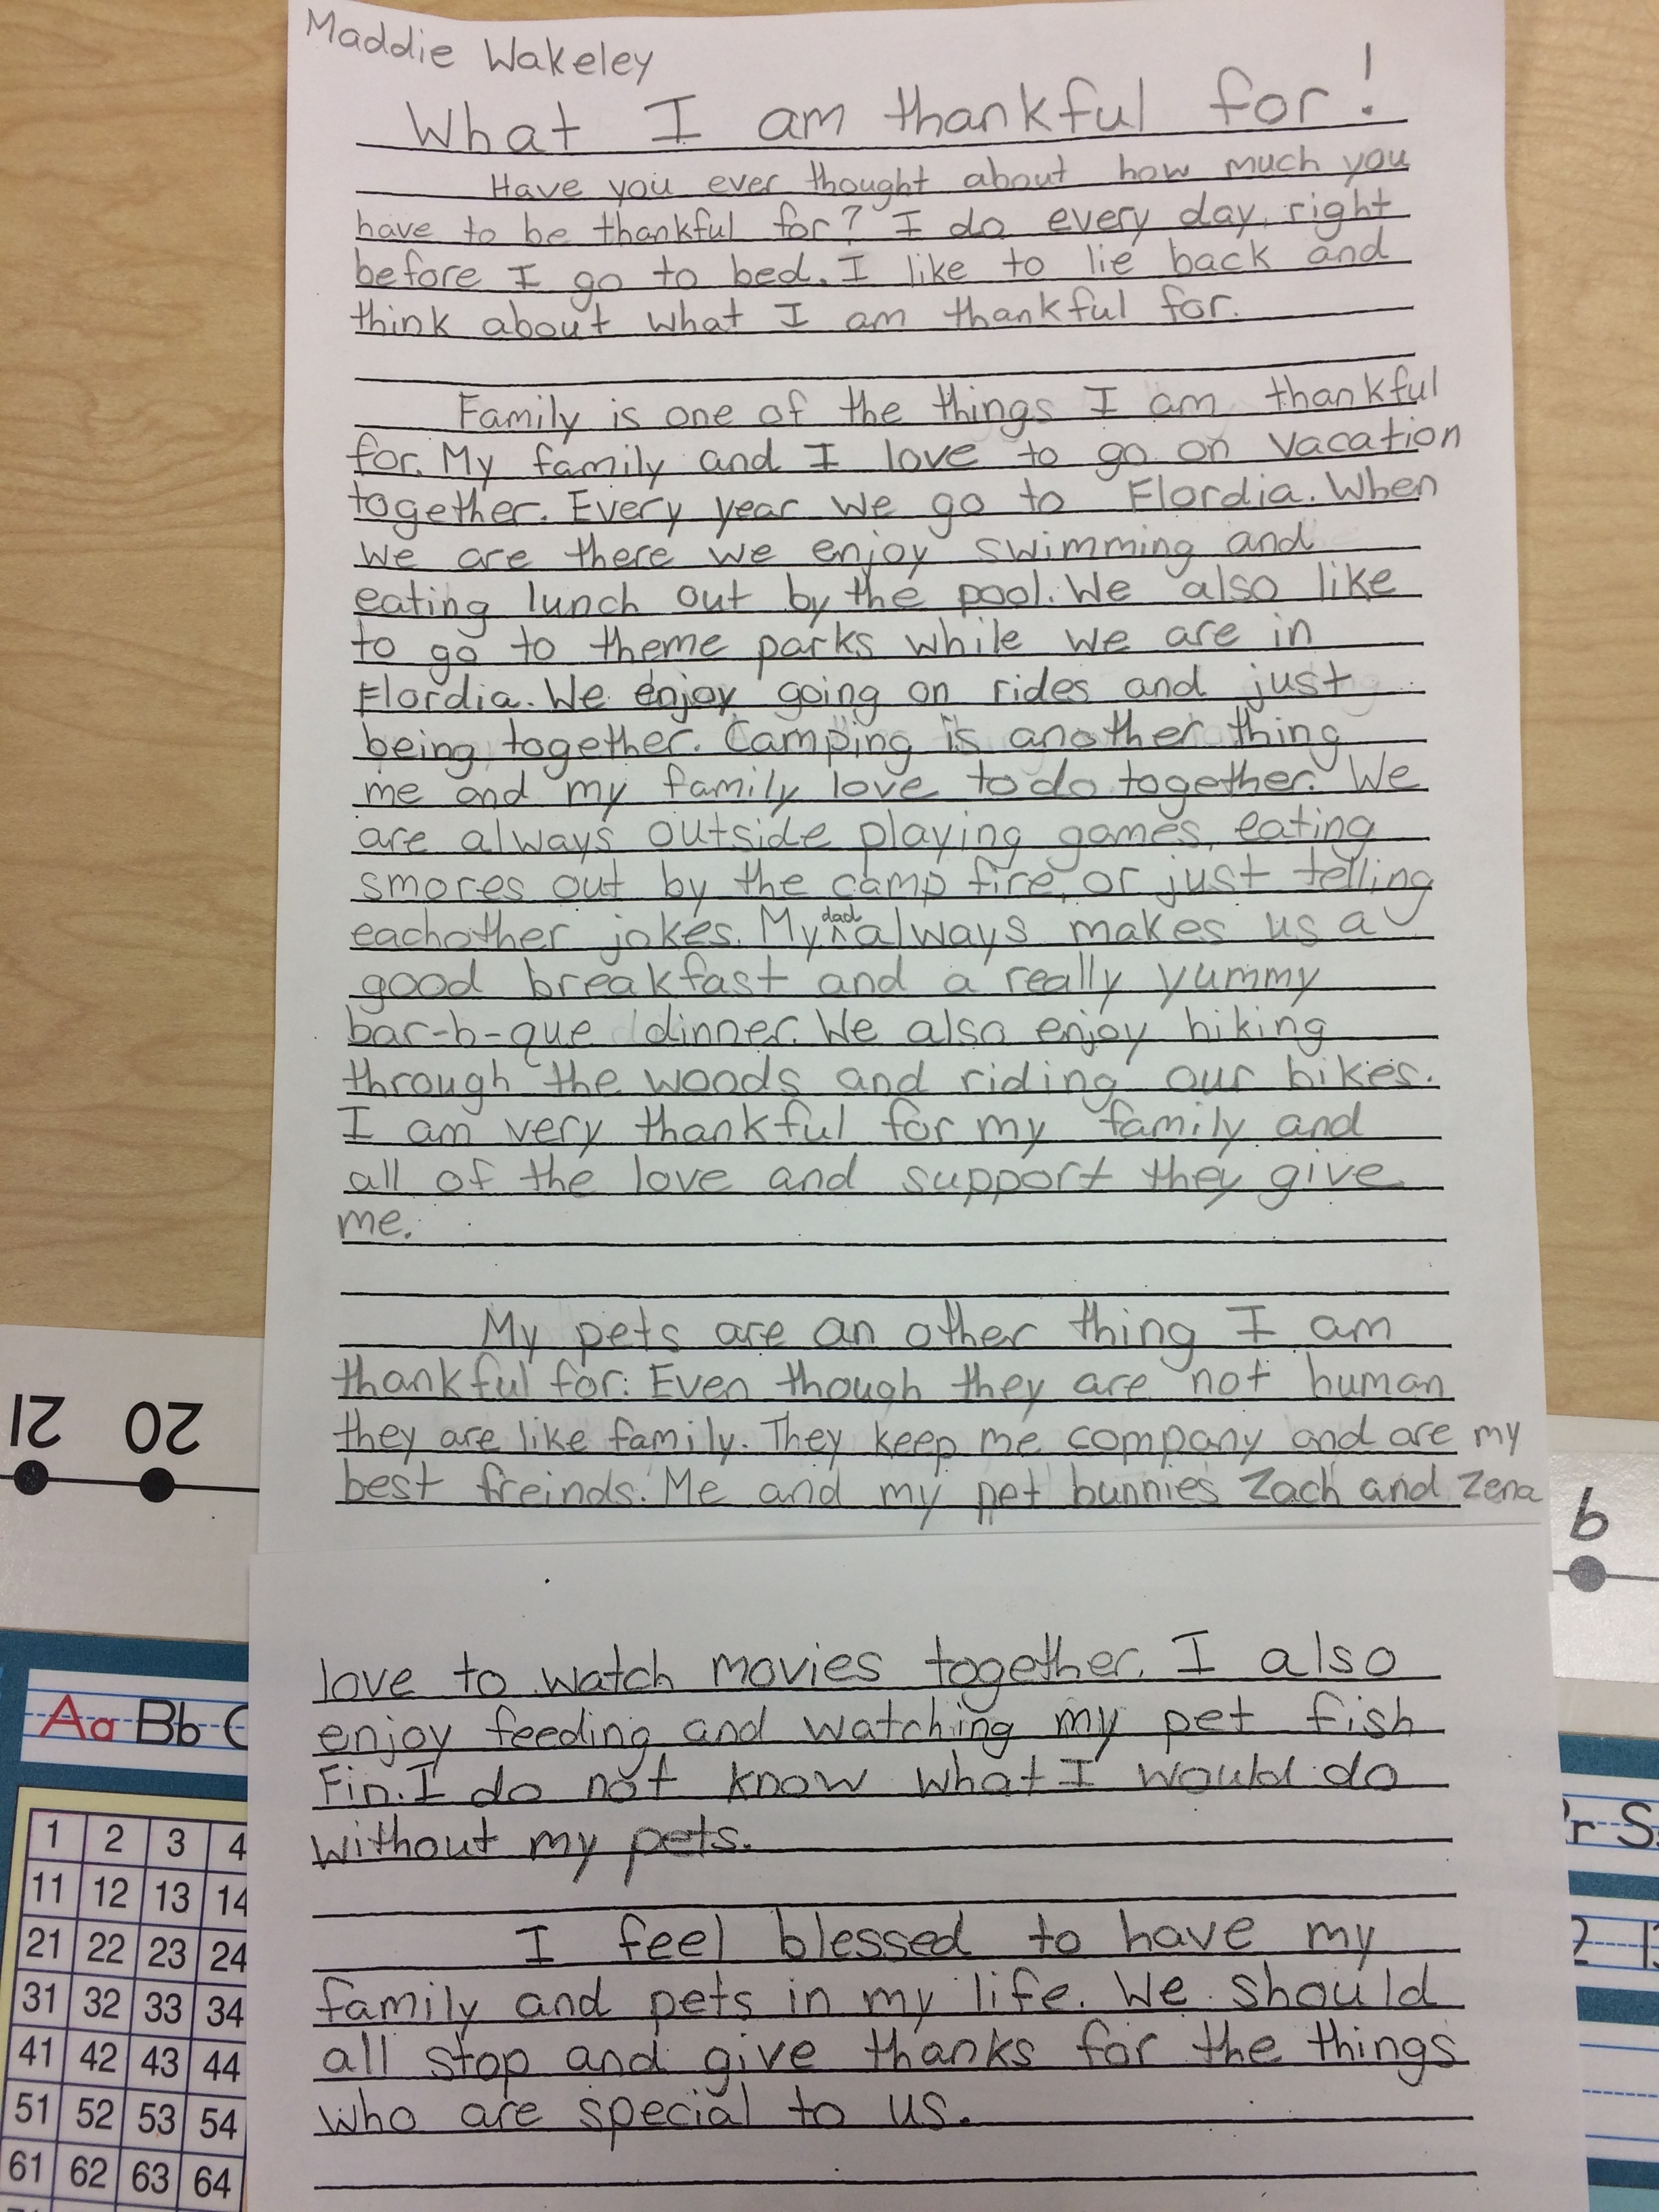 Maddie Wakeley
What I am thankful for!
Have you ever thought about how much you
have to be thankful for? I do every day, right
before I go to bed. I like to lie back and
think about what I am thankful for.
Family is one of the things I am thankful
for. My family and I love to go on vacation
together. Every year we go to Flordia. When
we are there we enjoy swimming and
eating lunch out by the pool. We also like
to go to theme parks while we are in
Flordia. We enjoy going on rides and just
being together. Camping is another thing
me and my family love to do together. We
are always outside playing games, eating
smores out by the camp fire, or just telling
eachother jokes. My dad always makes us a
good breakfast and a really yummy
bar-b-que dinner. We also enjoy hiking
through the woods and riding our bikes.
I am very thankful for my family and
all of the love and support they give
me.
My pets are an other thing I am
thankful for. Even though they are not human
they are like family. They keep me company and are my
best freinds. Me and my pet bunnies Zach and Zena
love to watch movies together. I also
enjoy feeding and watching my pet fish
Fin. I do not know what I would do
without my pets.
I feel blessed to have my
family and pets in my life. We should
all stop and give thanks for the things
who are special to us.
21 20
9
Aa Bb C
r S
2 1
1 2 3 4
11 12 13 14
21 22 23 24
31 32 33 34
41 42 43 44
51 52 53 54
61 62 63 64